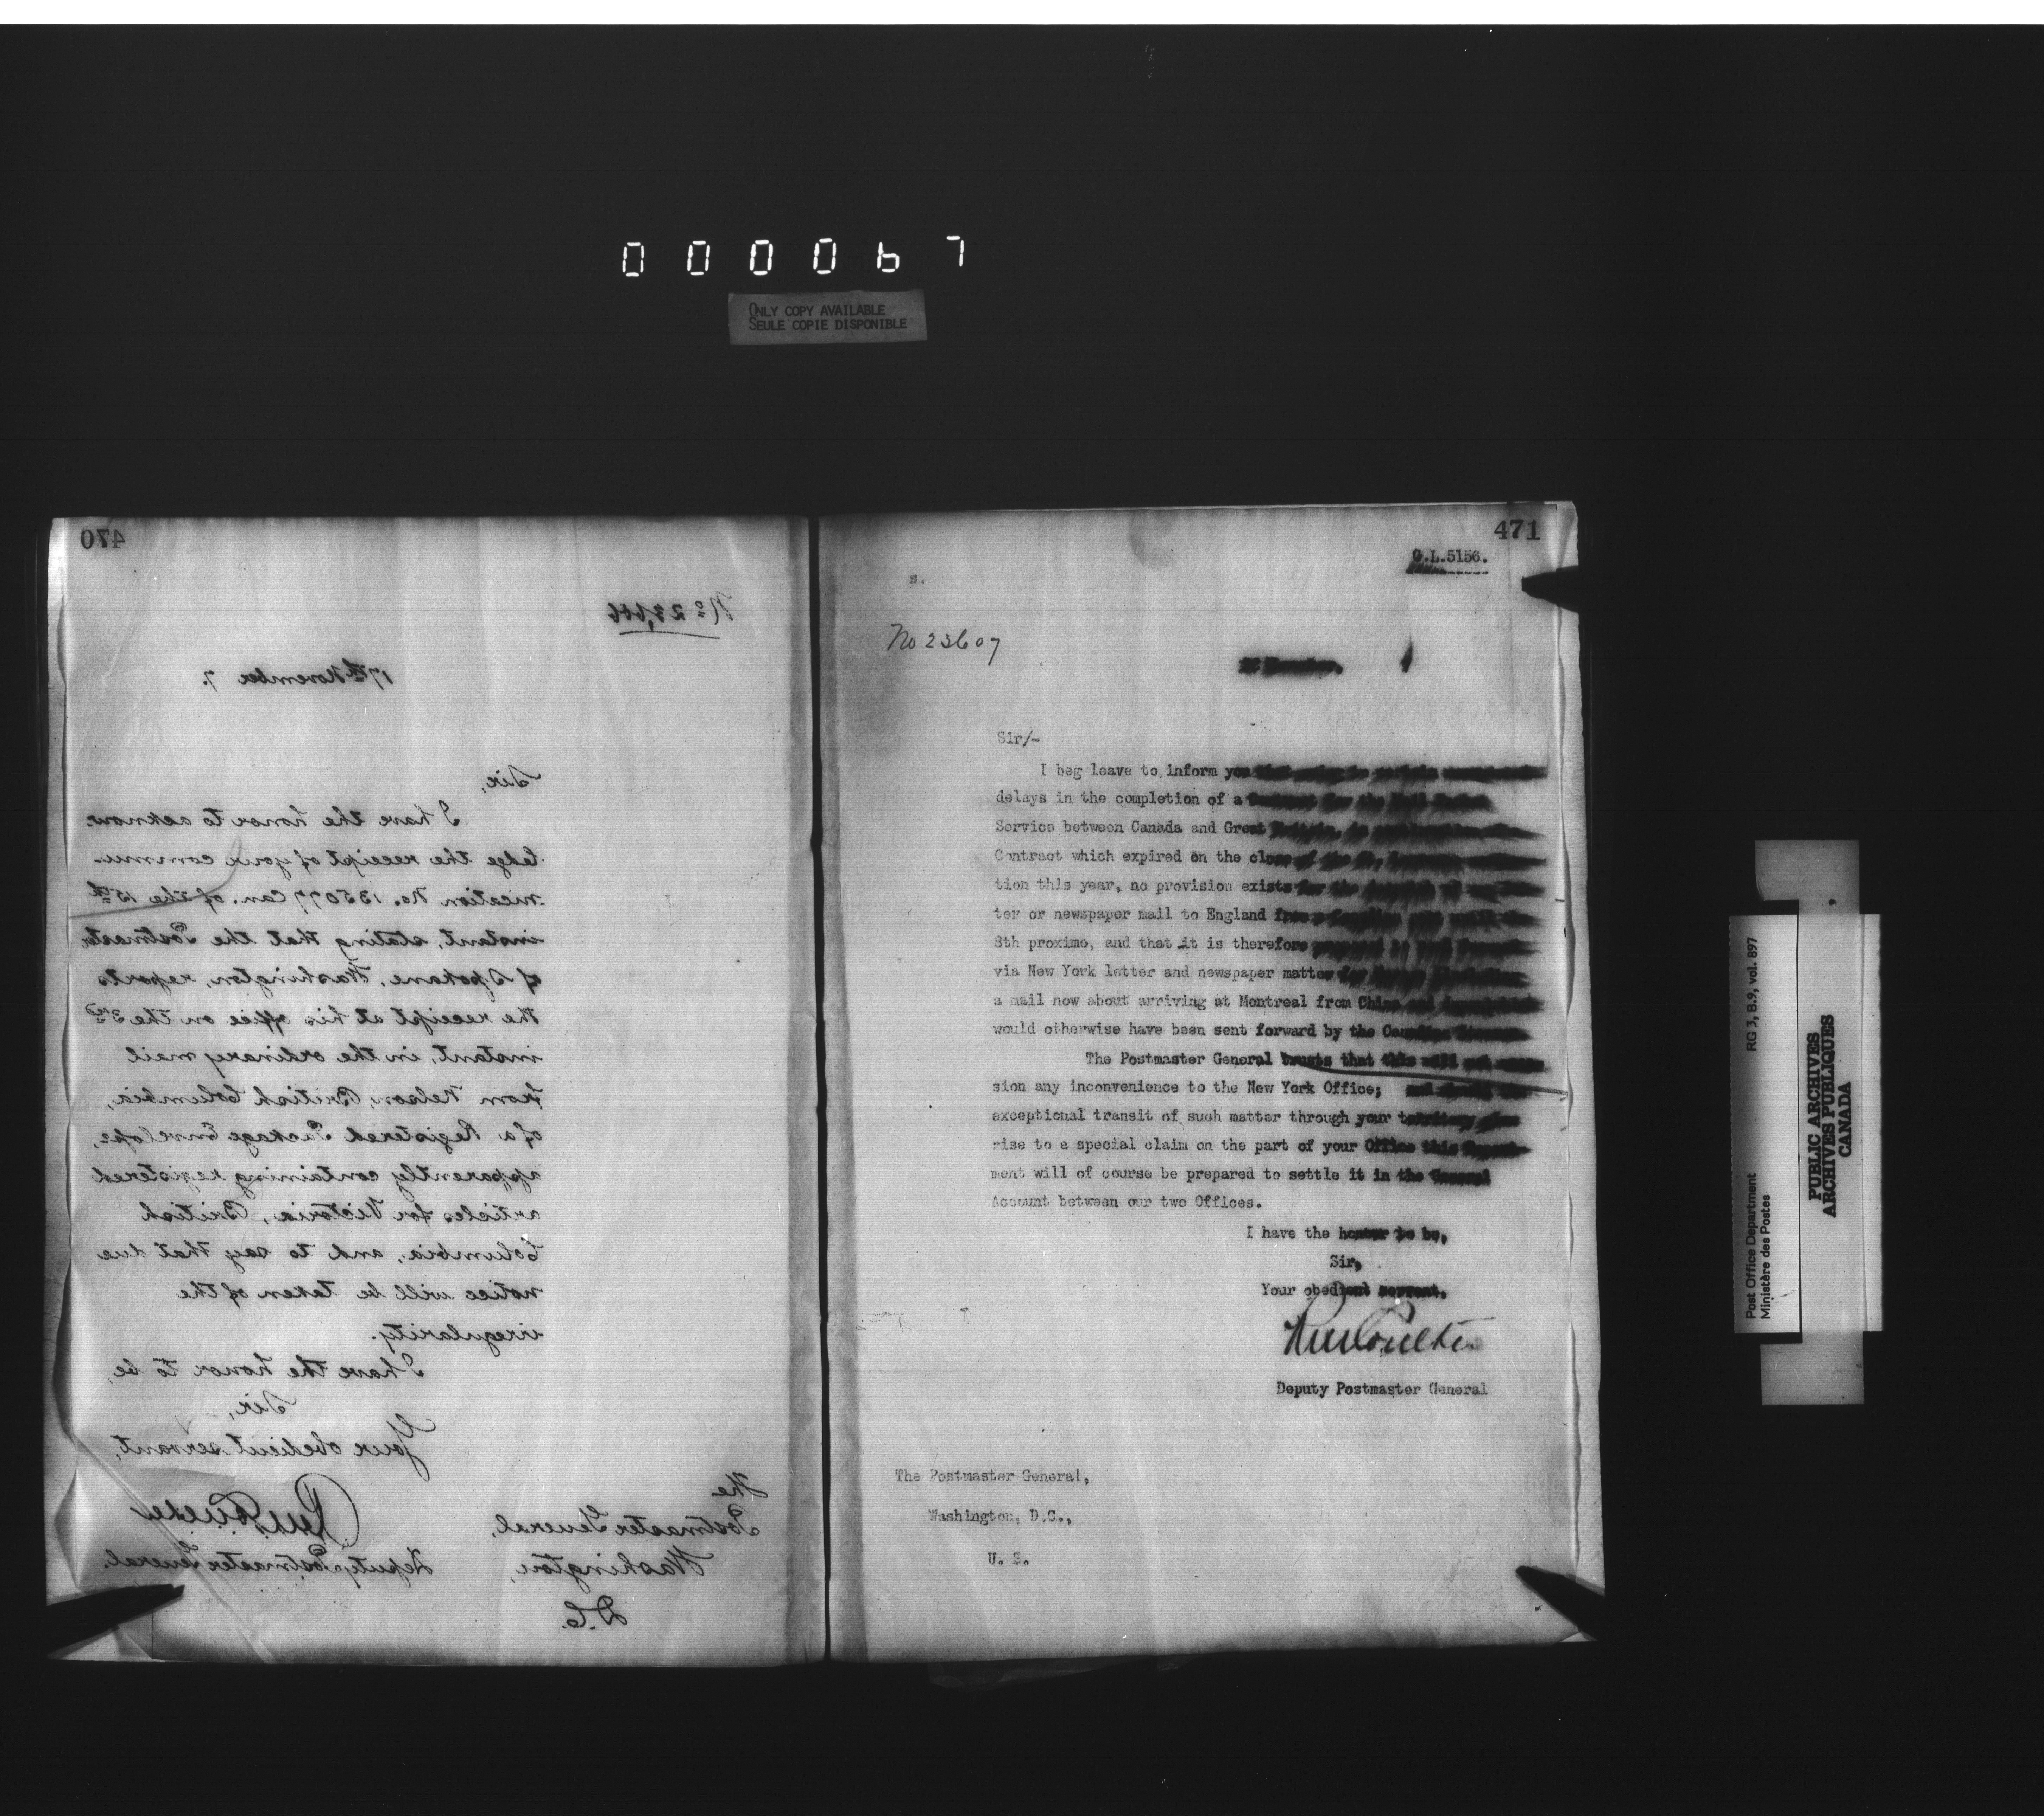 0 0 0 0 6 7
ONLY COPY AVAILABLE
SEULE COPIE DISPONIBLE
470
No 23,606
17th November 7.
Sir,
I have the honor to acknow-
ledge the receipt of your commu-
nication No. 135077 Can. of the 15th
instant, stating that the Postmaster
of Spokane, Washington, reports
the receipt at his office on the 3rd
instant, in the ordinary mail
from Nelson, British Columbia,
of a Registered Package Envelope,
apparently containing registered
articles for Victoria, British
Columbia, and to say that due
notice will be taken of the
irregularity.
I have the honor to be,
Sir,
Your obedient servant,
Deputy Postmaster General.
The
Postmaster General,
Washington,
D.C.
471
G.L.5156.
s.
No 23607
Sir/-
I beg leave to inform you
delays in the completion of a
Service between Canada and Great
Contract which expired on the close of the
tion this year, no provision exists for the
ter or newspaper mail to England
8th proximo, and that it is therefore
via New York letter and newspaper matter
a mail now about arriving at Montreal from China and
would otherwise have been sent forward by the Canadian
The Postmaster General trusts that this will not
sion any inconvenience to the New York Office;
exceptional transit of such matter through your territory
rise to a special claim on the part of your Office this Depart-
ment will of course be prepared to settle it in the General
Account between our two Offices.
I have the honour to be,
Sir,
Your obedient servant.
Deputy Postmaster General
The Postmaster General,
Washington, D.C.,
U. S.
Post Office Department
Ministère des Postes
RG 3, B.9, vol. 897
PUBLIC ARCHIVES
ARCHIVES PUBLIQUES
CANADA